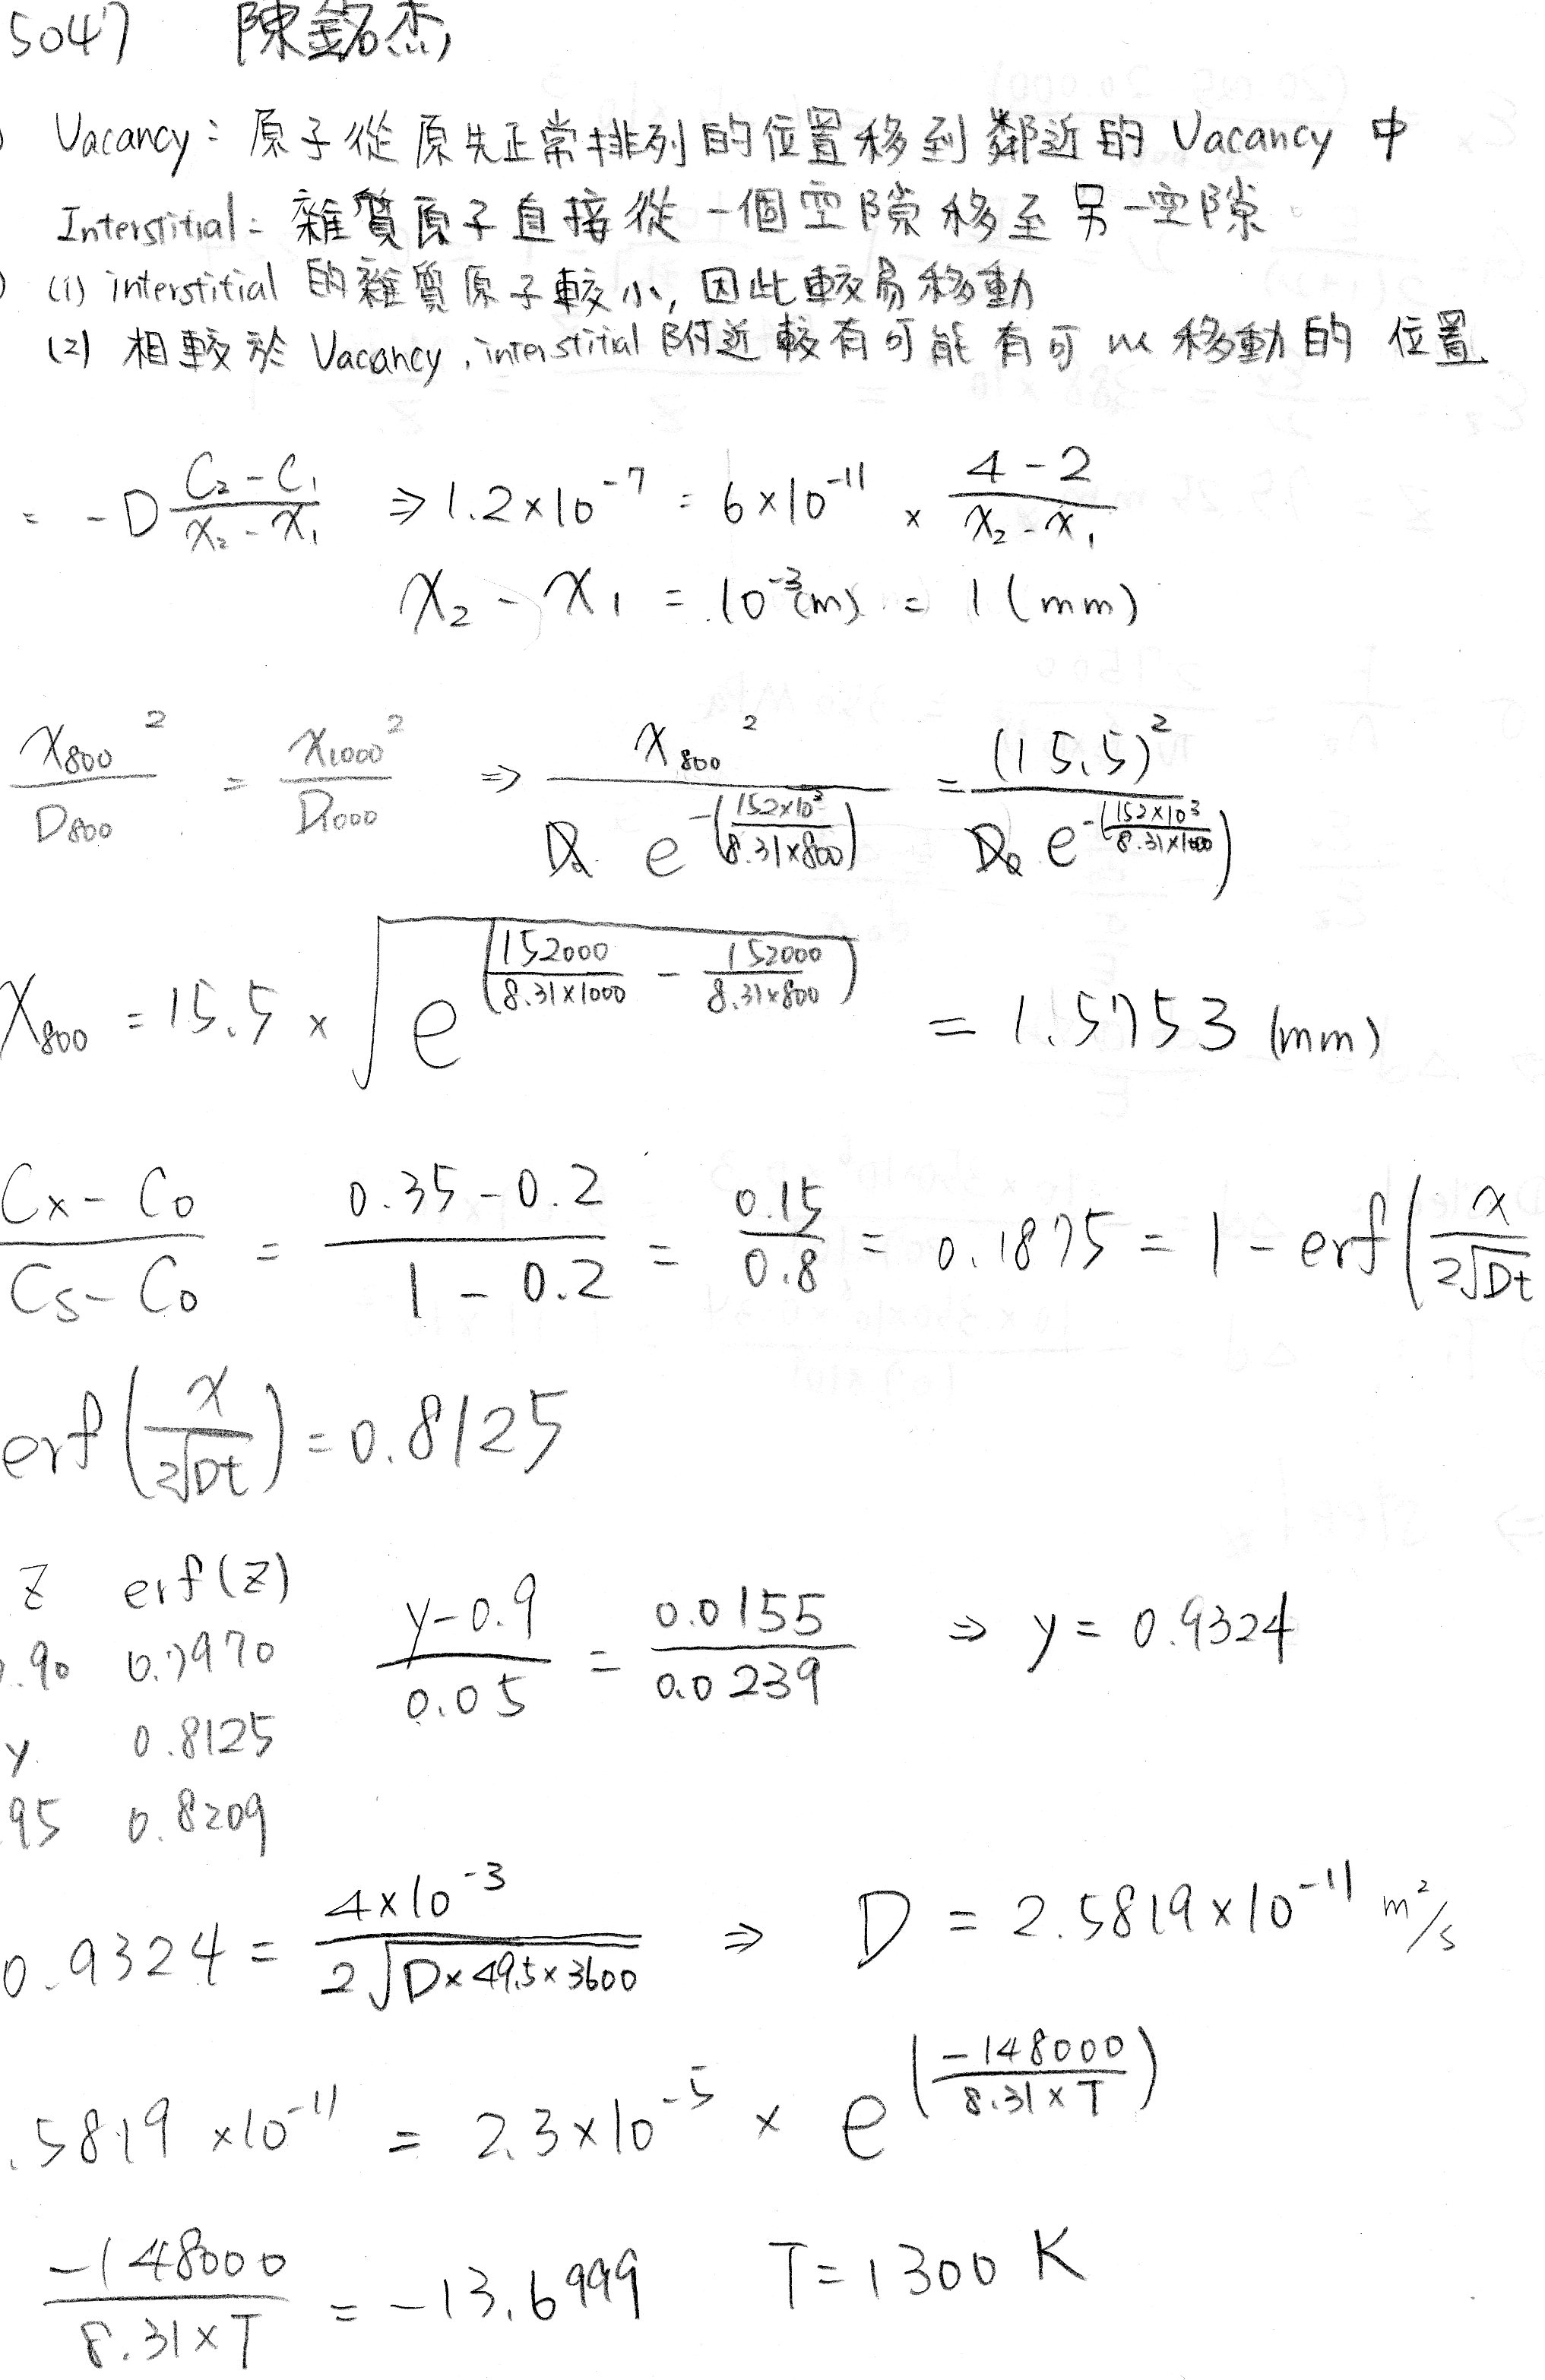 5047 陳銘杰
Vacancy: 原子從原先正常排列的位置移到鄰近的 Vacancy 中
Interstitial: 雜質原子直接從一個空隙移至另一空隙
(1) interstitial 的雜質原子較小, 因此較易移動
(2) 相較於 Vacancy, interstitial 附近較有可能有可以移動的位置
= -D (C₂ - C₁)/(x₂ - x₁) ⇒ 1.2×10⁻⁷ = 6×10⁻¹¹ × (4-2)/(x₂ - x₁)
x₂ - x₁ = 10⁻³(m) = 1 (mm)
x₈₀₀²/D₈₀₀ = x₁₀₀₀²/D₁₀₀₀ ⇒ x₈₀₀²/(D₀ e^-(152×10³/(8.31×800))) = (15.5)²/(D₀ e^-(152×10³/(8.31×1000)))
x₈₀₀ = 15.5 × √(e^(152000/(8.31×1000) - 152000/(8.31×800))) = 1.5753 (mm)
(Cx - C₀)/(Cs - C₀) = (0.35 - 0.2)/(1 - 0.2) = 0.15/0.8 = 0.1875 = 1 - erf(x/(2√Dt)
erf(x/(2√Dt)) = 0.8125
z erf(z)
.90 0.7970
y 0.8125
.95 0.8209
(y-0.9)/0.05 = 0.0155/0.0239 ⇒ y = 0.9324
0.9324 = 4×10⁻³/(2√(D×49.5×3600)) ⇒ D = 2.5819×10⁻¹¹ m²/s
.5819 ×10⁻¹¹ = 2.3×10⁻⁵ × e^(-148000/(8.31×T))
-148000/(8.31×T) = -13.6999 T = 1300 K